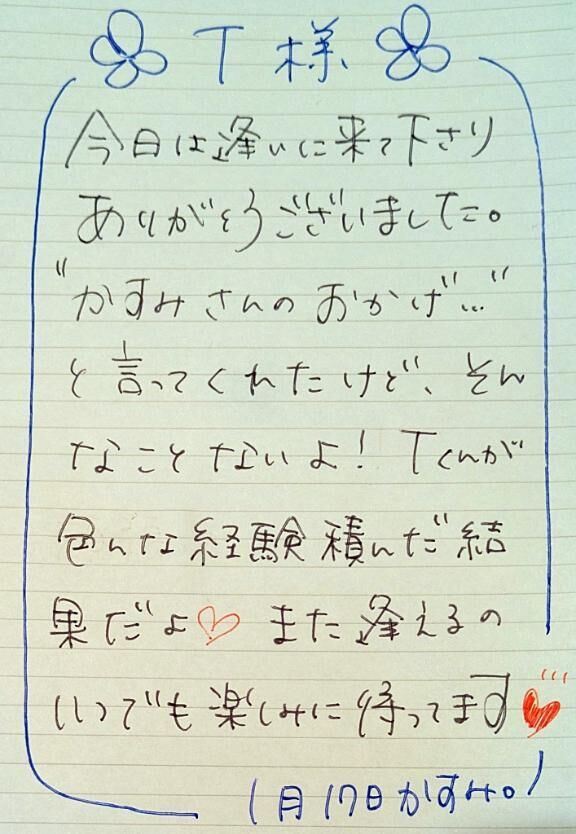 T 様
今日は逢いに来て下さり
ありがとうございました。
"かすみさんのおかげ…"
と言ってくれたけど、そん
なことないよ! Tくんが
色んな経験積んだ結
果だよ♡ また逢えるの
いつでも楽しみに待ってます♥
1月17日かすみ。